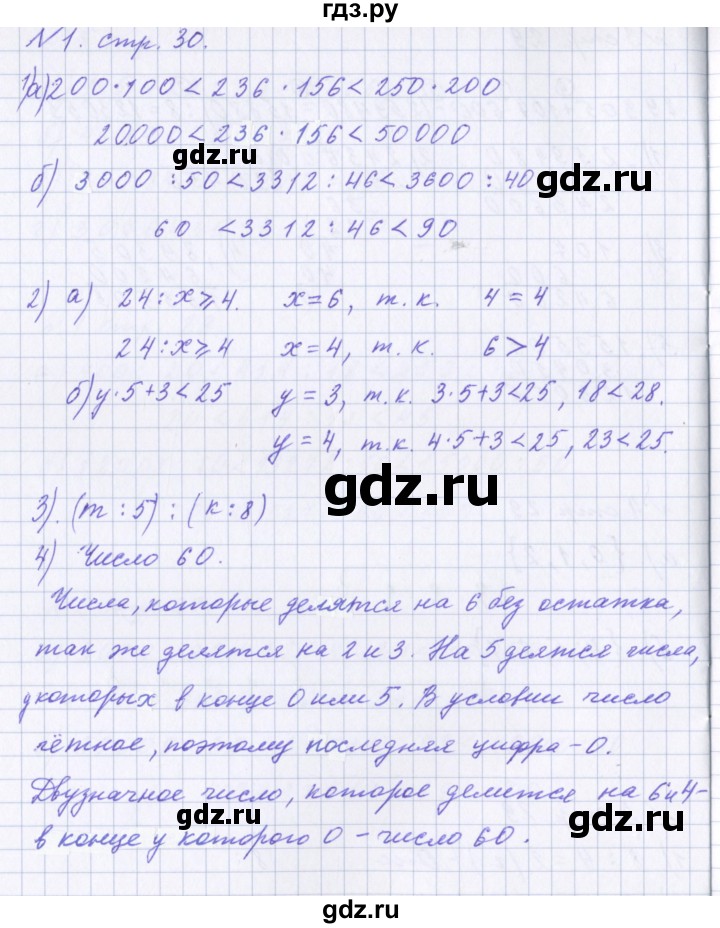 гдз.ру
N1. стр. 30.
1)а) 200·100 < 236 · 156 < 250 · 200
20000 < 236 · 156 < 50000
gdz.ru
б) 3000 : 50 < 3312 : 46 < 3600 : 40
gdz.ru
60 < 3312 : 46 < 90
2) а) 24 : x ⩾ 4. x = 6, т.к. 4 = 4
24 : x ⩾ 4 x = 4, т.к. 6 > 4
б) y·5+3 < 25 y = 3, т.к. 3·5+3 < 25, 18 < 28.
y = 4, т.к. 4·5+3 < 25, 23 < 25.
gdz.ru
3). (m : 5) : (k : 8)
4) Число 60.
Числа, которые делятся на 6 без остатка,
так же делятся на 2 и 3. На 5 делятся числа,
у которых в конце 0 или 5. В условии число
чётное, поэтому последняя цифра – 0.
Двузначное число, которое делится на 6 и 4 –
gdz.ru
gdz.ru
в конце у которого 0 – число 60.
gdz.ru